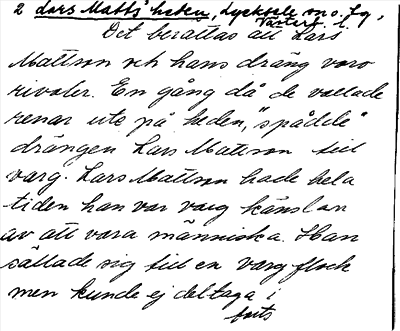 2 Lars Matts' heden, Lycksele sn o. Lg,
Västerb. l
Det berättas att Lars
Mattson och hans dräng voro
rivaler. En gång då de vallade
renar ute på heden, "spådde"
drängen Lars Mattson till
varg. Lars Mattson hade hela
tiden han var varg känslan
av att vara människa. Han
sällade sig till en vargflock
men kunde ej deltaga i
forts